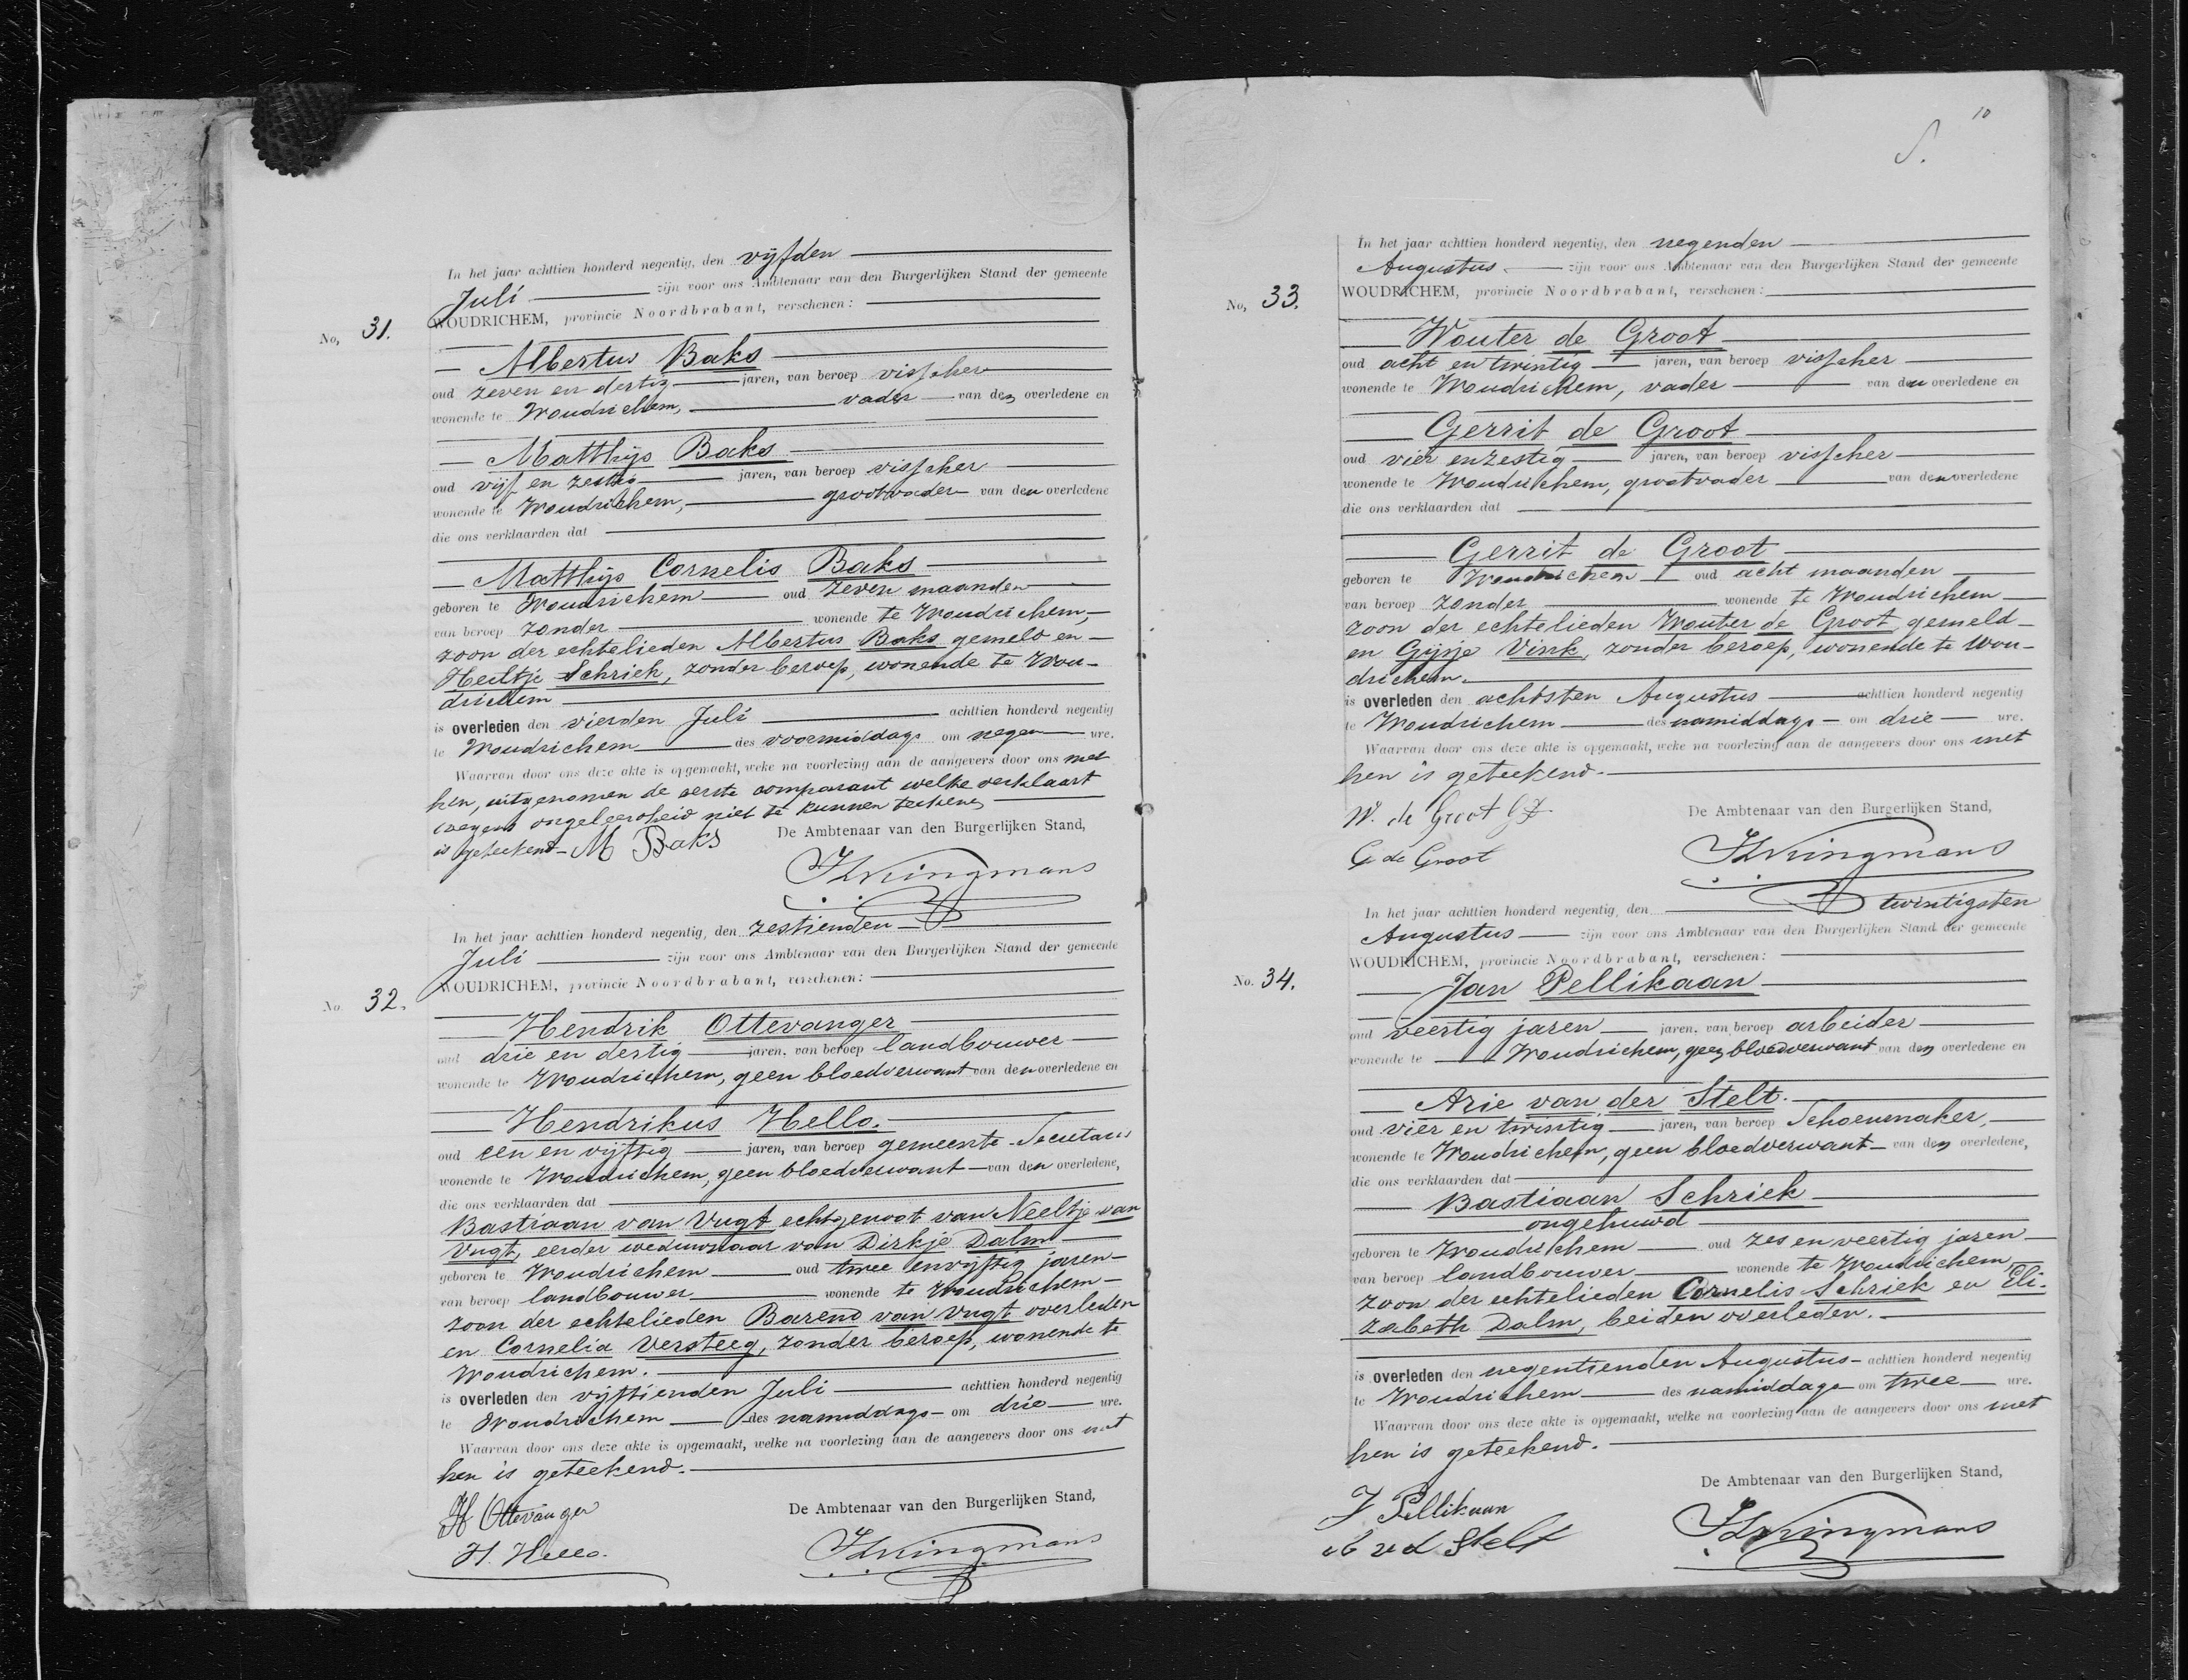 In het jaar achttien honderd negentig, den vijfden
Juli zijn voor ons Ambtenaar van den Burgerlijken Stand der gemeente
WOUDRICHEM, provincie Noordbrabant, verschenen:
No, 31.
Albertus Baks
oud zeven en dertig jaren, van beroep visscher
wonende te Woudrichem, vader van den overledene en
Matthijs Baks
oud vijf en zestig jaren, van beroep visscher
wonende te Woudrichem, grootvader van den overledene
die ons verklaarden dat
Matthijs Cornelis Baks
geboren te Woudrichem oud zeven maanden
van beroep zonder wonende te Woudrichem,
zoon der echtelieden Albertus Baks gemeld en
Heiltje Schriek, zonder beroep, wonende te Wou-
drichem
is overleden den vierden Juli achttien honderd negentig
te Woudrichem des voormiddags om negen ure.
Waarvan door ons deze akte is opgemaakt, weke na voorlezing aan de aangevers door ons met
hen, uitgenomen de eerste comparant welke verklaart
wegens ongeleerdheid niet te kunnen teekenen
is geteekend. M Baks De Ambtenaar van den Burgerlijken Stand,
In het jaar achttien honderd negentig, den zestienden
Juli zijn voor ons Ambtenaar van den Burgerlijken Stand der gemeente
WOUDRICHEM, provincie Noordbrabant, verschenen:
No. 32.
Hendrik Ottevanger
oud drie en dertig jaren, van beroep landbouwer
wonende te Woudrichem, geen bloedverwant van den overledene en
Hendrikus Hello.
oud een en vijftig jaren, van beroep gemeente-Secretaris
wonende te Woudrichem, geen bloedverwant van den overledene,
die ons verklaarden dat
Bastiaan van Vugt echtgenoot van Neeltje van
Vugt, eerder weduwnaar van Dirkje Dalm
geboren te Woudrichem oud twee en vijftig jaren
van beroep landbouwer wonende te Woudrichem
zoon der echtelieden Barend van Vugt overleden
en Cornelia Versteeg, zonder beroep, wonende te
Woudrichem.
is overleden den vijftienden Juli achttien honderd negentig
te Woudrichem des namiddags om drie ure.
Waarvan door ons deze akte is opgemaakt, welke na voorlezing aan de aangevers door ons met
hen is geteekend.
H Ottevanger De Ambtenaar van den Burgerlijken Stand,
H. Hello.
10
In het jaar achttien honderd negentig, den negenden
Augustus zijn voor ons Ambtenaar van den Burgerlijken Stand der gemeente
WOUDRICHEM, provincie Noordbrabant, verschenen:
No, 33.
Wouter de Groot
oud acht en twintig jaren, van beroep visscher
wonende te Woudrichem, vader van den overledene en
Gerrit de Groot
oud vier en zestig jaren, van beroep visscher
wonende te Woudrichem, grootvader van den overledene
die ons verklaarden dat
Gerrit de Groot
geboren te Woudrichem oud acht maanden
van beroep zonder wonende te Woudrichem
zoon der echtelieden Wouter de Groot gemeld
en Gijsje Vink, zonder beroep, wonende te Wou-
drichem.
is overleden den achtsten Augustus achttien honderd negentig
te Woudrichem des namiddags om drie ure.
Waarvan door ons deze akte is opgemaakt, weke na voorlezing aan de aangevers door ons met
hen is geteekend.
W. de Groot GZ De Ambtenaar van den Burgerlijken Stand,
G de Groot
In het jaar achttien honderd negentig, den twintigsten
Augustus zijn voor ons Ambtenaar van den Burgerlijken Stand der gemeente
WOUDRICHEM, provincie Noordbrabant, verschenen:
No. 34.
Jan Pellikaan
oud veertig jaren jaren, van beroep arbeider
wonende te Woudrichem, geen bloedverwant van den overledene en
Arie van der Stelt.
oud vier en twintig jaren, van beroep Schoenmaker,
wonende te Woudrichem, geen bloedverwant van den overledene,
die ons verklaarden dat
Bastiaan Schriek
ongehuwd
geboren te Woudrichem oud zes en veertig jaren
van beroep landbouwer wonende te Woudrichem,
zoon der echtelieden Cornelis Schriek en Eli-
zabeth Dalm, beiden overleden.
is overleden den negentienden Augustus achttien honderd negentig
te Woudrichem des namiddags om twee ure.
Waarvan door ons deze akte is opgemaakt, welke na voorlezing aan de aangevers door ons met
hen is geteekend.
J Pellikaan De Ambtenaar van den Burgerlijken Stand,
v d Stelt